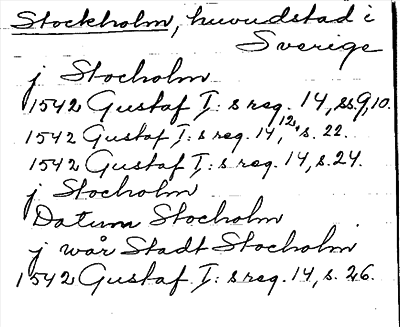 Stockholm, huvudstad i
Sverige
j Stocholm
1542 Gustaf I:s reg. 14, ss. 9, 10.
1542 Gustaf I:s reg. 14, 12, s. 22.
1542 Gustaf I:s reg. 14, s. 24.
j Stocholm
Datum Stocholm
j wår Stadt Stocholm
1542 Gustaf I:s reg. 14, s. 26.